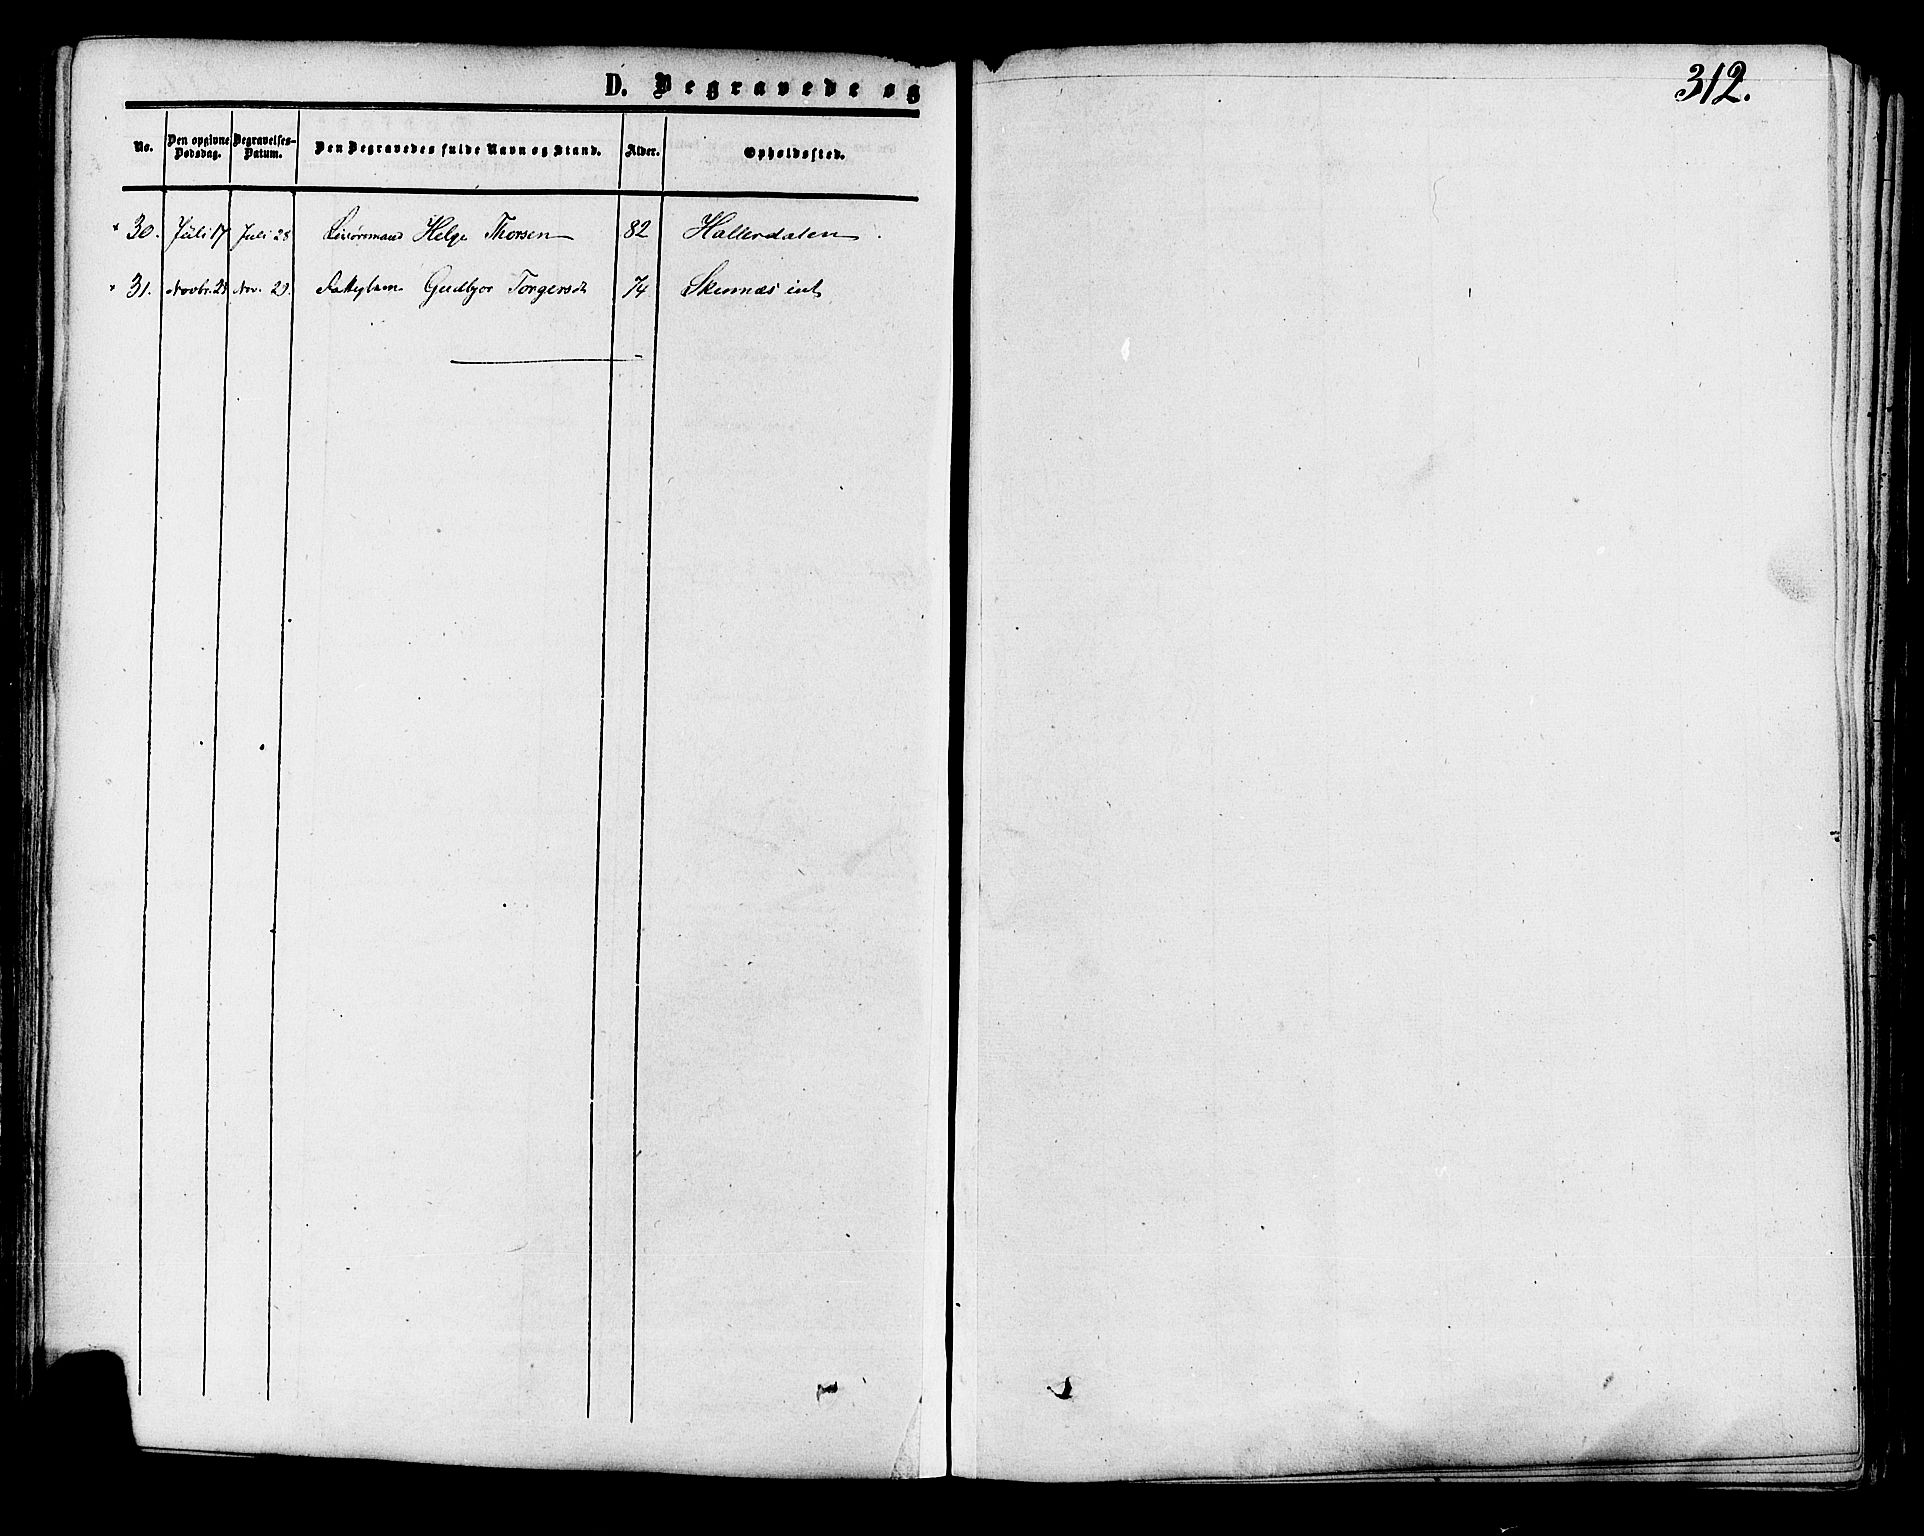 D. Begravede og
312.
No. Den opgivne Dødsdag. Begravelses-Datum. Den Begravedes fulde Navn og Stand. Alder. Opholdssted.
* 30. Juli 17 Juli 28 Livørsmand Helge Thorsen 82 Hallerdalen.
* 31. Novbr. 21 Nov. 29. Fattiglem Gudbjor Torgersdt 74 Skurnæs